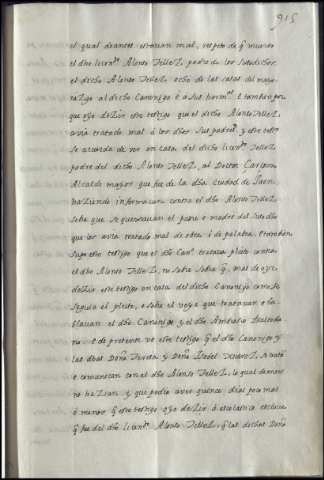 915
el qual de antes estavan mal, respeto de q̃ muerto
el dho licen^do Alonso Tellez padre de los susodichos
el dicho Alonso Tellez echo de las casas del mayo-
razgo al dicho Canonigo e a sus herm^os e tambien por
que oyo dezir este testigo que el dicho Alonso Tellez
avia tratado mal a los dhos sus padres y este testigo
se acuerda de ver en casa del dicho licen^do Tellez
padre del dicho Alonso Tellez, al Doctor
Alcalde mayor que fue de la dha ciudad de Jaen
haziendo informacion contra el dho Alonso Tellez
sobre que se quexavan el padre e madre del susodho
que los avia tratado mal de obra e de palabra. e tambien
supo este testigo que el dho Can^o tratava pleito contra
el dho Alonso Tellez, no sabe sobre q̃, mas de oyr
dezir este testigo en casa del dicho Canonigo como se
seguia el pleito, e sabe el que tratavan e ha-
blavan el dho Canonigo y el dho Antonio
e de presente ve este testigo q̃ el dho Canonigo y
las dhas Doña y Doña Isabel tratan
e comunican con el dho Alonso Tellez, lo qual de antes
no hazian, y que podia aver quinze dias poco mas
o menos q̃ este testigo oyo dezir a
q̃ fue del dho licen^do Alonso Tellez q̃ las dichas Doña